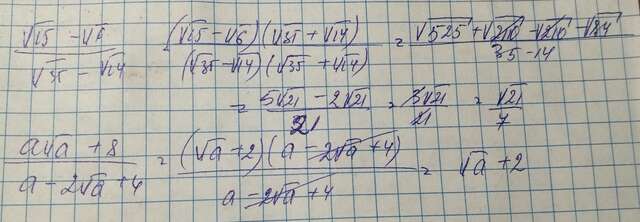 (√15 - √6)/(√35 - √14) (√15 - √6)(√35 + √14)/(√35 - √14)(√35 + √14) = (√525 + √210 - √210 - √84)/(35 - 14)
= (5√21 - 2√21)/21 = 3√21/21 = √21/7
(a√a + 8)/(a - 2√a + 4) = (√a + 2)(a - 2√a + 4)/(a - 2√a + 4) = √a + 2